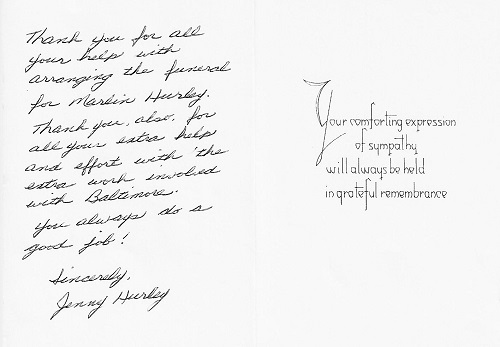 Thank you for all
your help with
arranging the funeral
for Marlin Hurley.
Thank you, also, for
all your extra help
and effort with the
extra work involved
with Baltimore.
You always do a
good job!
Sincerely,
Jenny Hurley
Your comforting expression
of sympathy
will always be held
in grateful remembrance